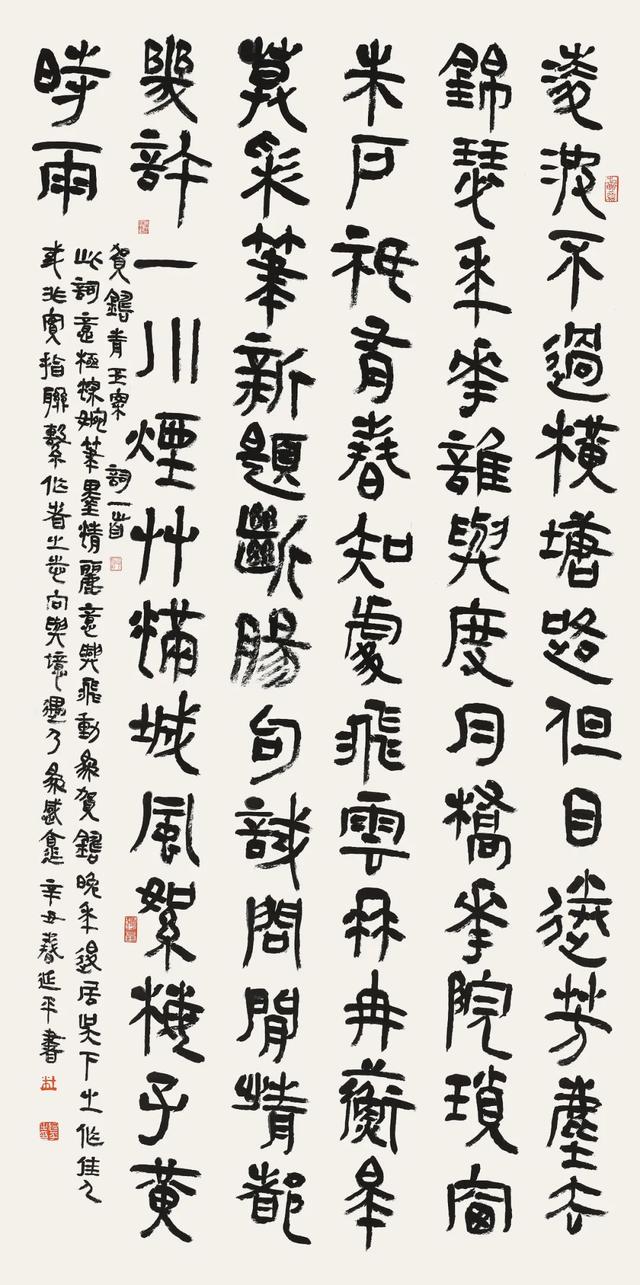 凌波不過橫塘路但目送芳塵去
錦瑟年華誰與度月橋花院瑣窗
朱户衹有春知處飛雲冉冉蘅皋
暮彩筆新題斷腸句試問閒情都
幾許一川煙艸滿城風絮梅子黄
時雨
賀鑄青玉案詞一首
此詞意極婉筆墨精麗意興飛動為賀鑄晚年退居吳下之作佳人
未必實指聯繫作者之志向與境遇乃感辛丑春延平書